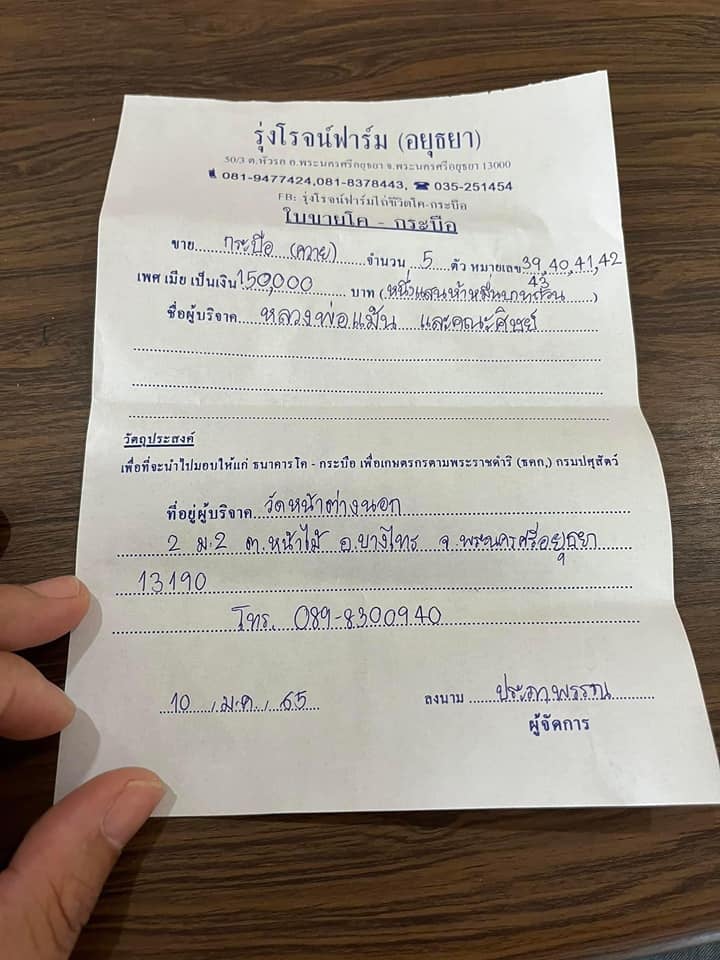 รุ่งโรจน์ฟาร์ม (อยุธยา)
50/3 ต.หัวรอ อ.พระนครศรีอยุธยา จ.พระนครศรีอยุธยา 13000
081-9477424,081-8378443, ☎ 035-251454
FB: รุ่งโรจน์ฟาร์มไถ่ชีวิตโค-กระบือ
ใบขายโค - กระบือ
ขาย กระบือ (ควาย) จำนวน 5 ตัว หมายเลข 39,40,41,42
43
เพศ เมีย เป็นเงิน 150,000 บาท (หนึ่งแสนห้าหมื่นบาทถ้วน)
ชื่อผู้บริจาค หลวงพ่อแม้น และคณะศิษย์
วัตถุประสงค์
เพื่อที่จะนำไปมอบให้แก่ ธนาคารโค - กระบือ เพื่อเกษตรกรตามพระราชดำริ (ธคก.) กรมปศุสัตว์
ที่อยู่ผู้บริจาค วัดหน้าต่างนอก
2 ม.2 ต.หน้าไม้ อ.บางไทร จ.พระนครศรีอยุธยา
13190
โทร. 089-8300940
10 ม.ค. 65
ลงนาม ประภาพรรณ
ผู้จัดการ